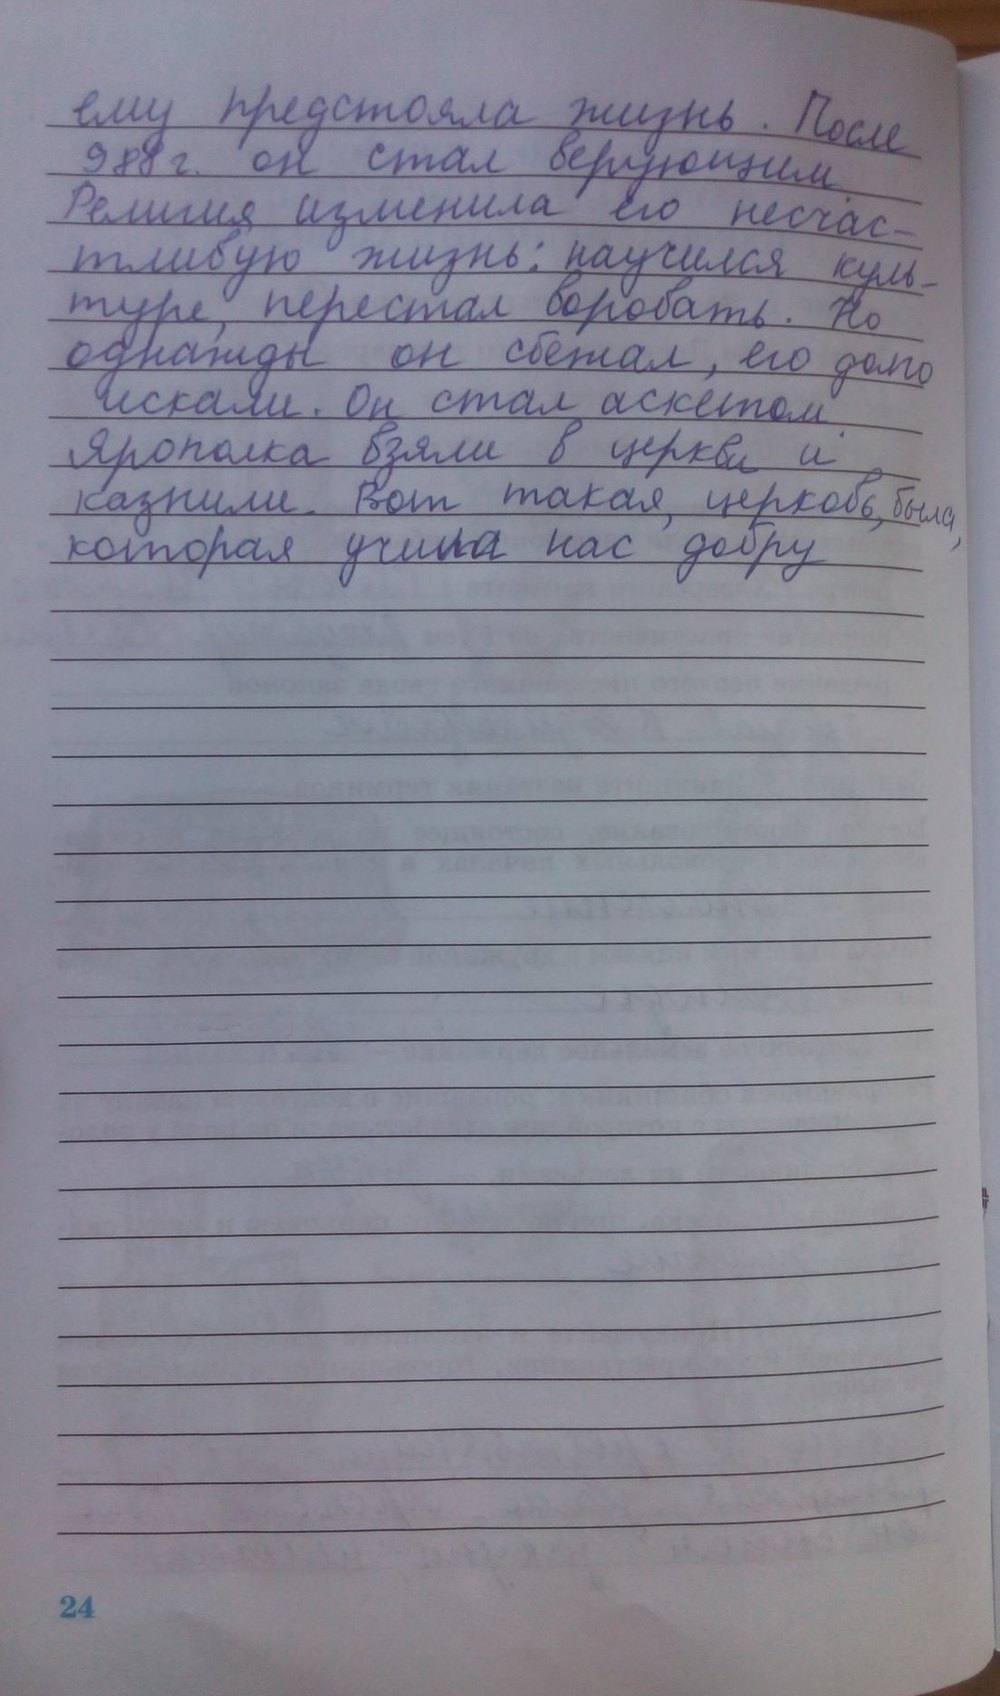 ему предстояла жизнь. После
988 г. он стал верующим
Религия изменила его несчас-
тливую жизнь: научился куль-
туре, перестал воровать. Но
однажды он сбежал, его долго
искали. Он стал аскетом
Ярополка взяли в церкви и
казнили. Вот такая, церковь, была,
которая учила нас добру
24